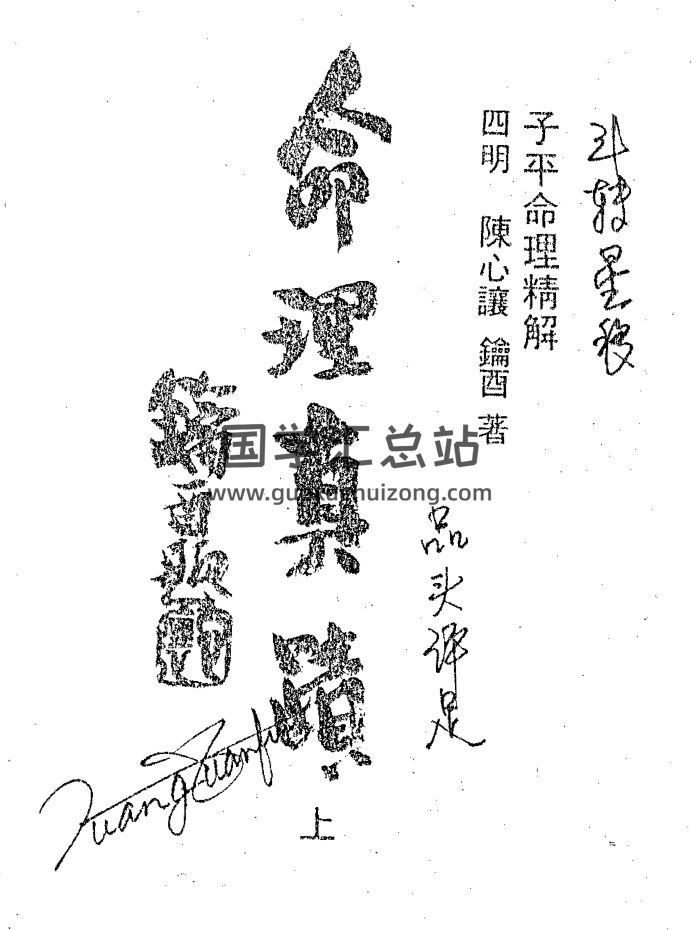 斗转星移
子平命理精解
四明 陳心讓 鑰酉 著
品头评足
命理真蹟
上
国学汇总站
www.guoxuehuizong.com